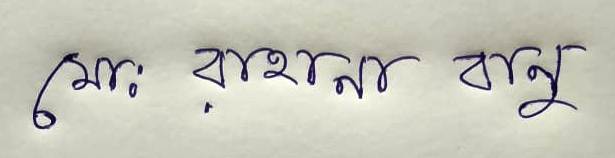 মোঃ রাহানা বানু